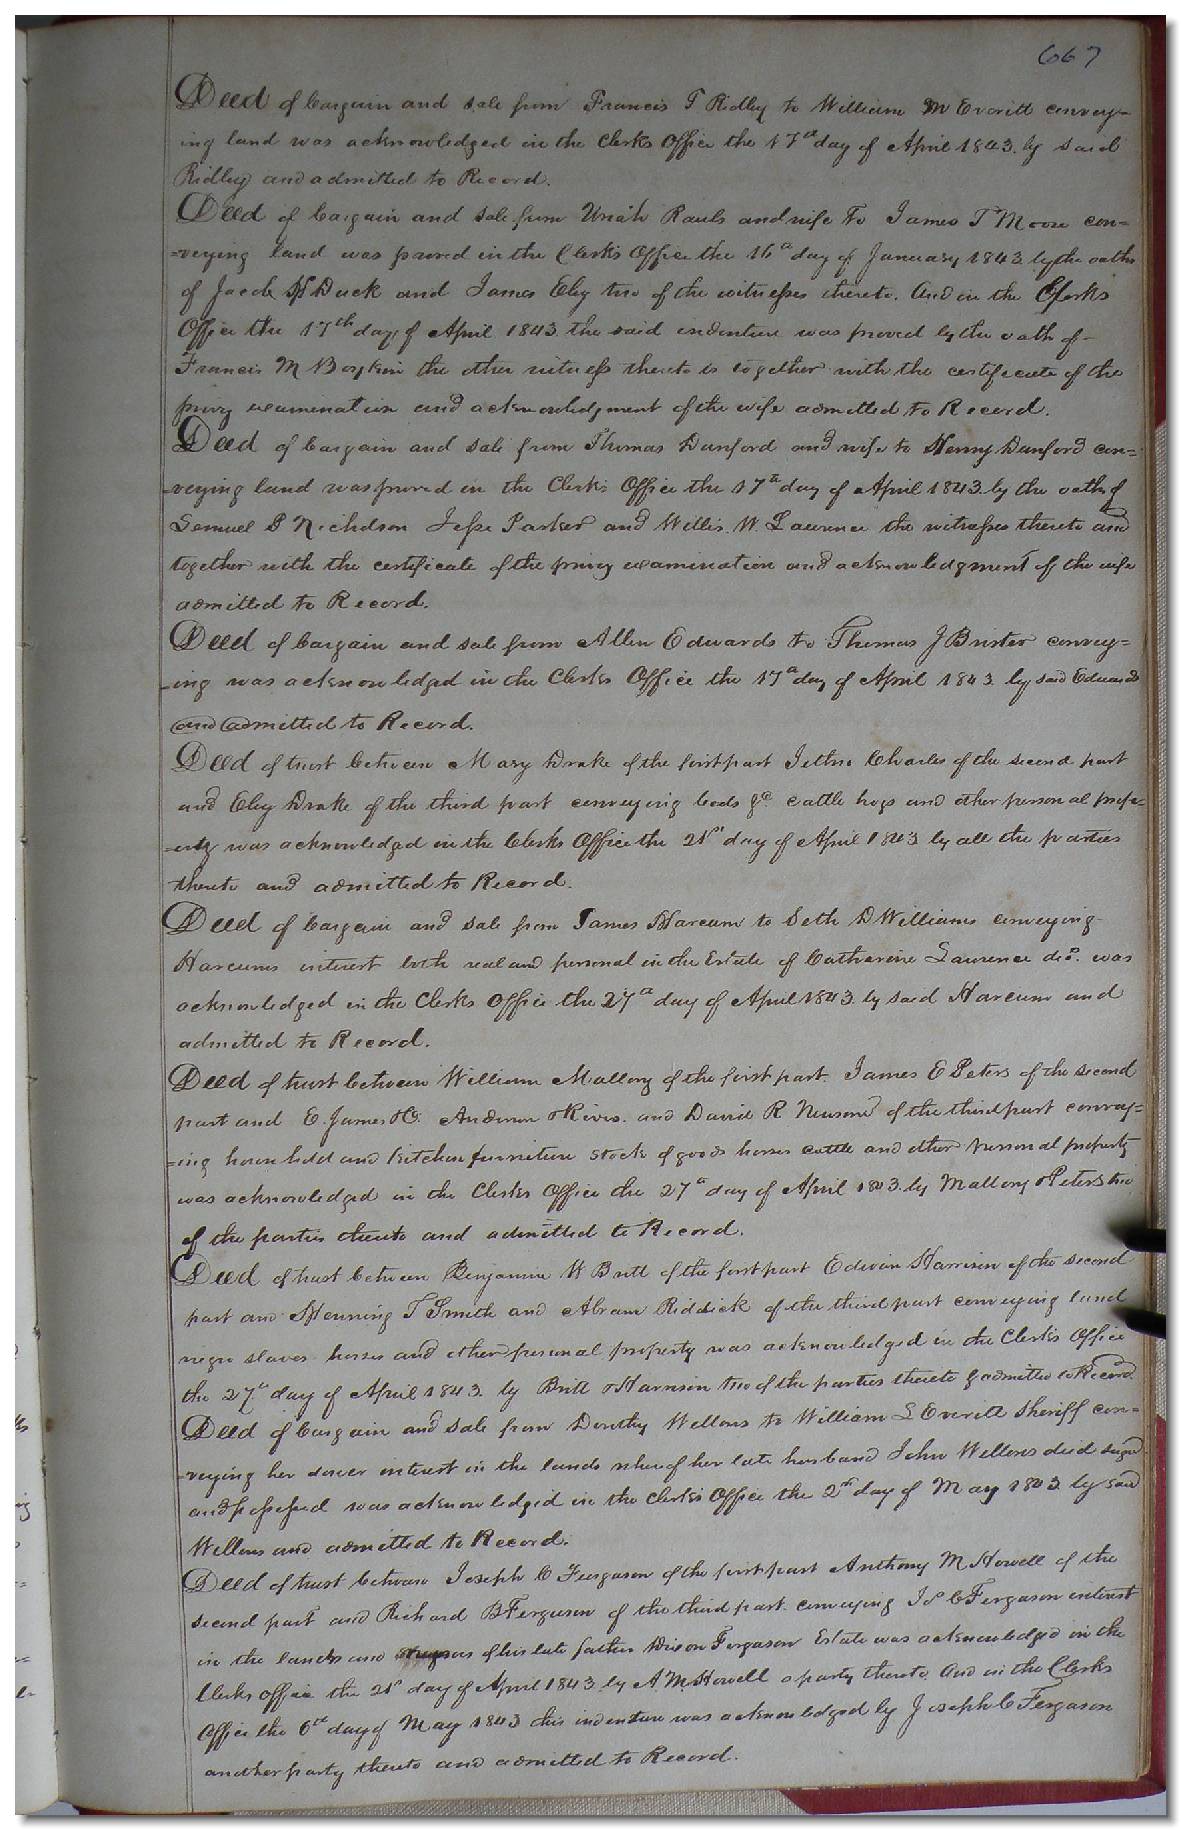 667
Deed of bargain and sale from Francis T Ridley to William M Everitt convey-
ing land was acknowledged in the Clerks Office the 17th day of April 1843. by said
Ridley and admitted to Record.
Deed of bargain and sale from Uriah Rauls and wife to James T Moore con=
=veying land was proved in the Clerks Office the 16th day of January 1843 by the oaths
of Jacob H Duck and James Eley two of the witnesses thereto. And in the Clerks
Office the 17th day of April 1843 the said indenture was proved by the oath of-
Francis M Boykin the other witness thereto is together with the certificate of the
privy examination and acknowledgment of the wife admitted to Record.
Deed of bargain and sale from Thomas Dunford and wife to Henry Dunford con=
=veying land was proved in the Clerks Office the 17th day of April 1843 by the oaths of
Samuel P Nicholson Jesse Parker and Willis W. Laurence the witnesses thereto and
together with the certificate of the privy examination and acknowledgment of the wife
admitted to Record.
Deed of bargain and sale from Allen Edwards to Thomas J Brister convey=
=ing was acknowledged in the Clerks Office the 17th day of April 1843 by said Edwards
and admitted to Record.
Deed of trust between Mary Drake of the first part Jethro Charles of the second part
and Eley Drake of the third part conveying beds &c. cattle hogs and other personal prope=
=erty was acknowledged in the Clerks Office the 21st day of April 1843 by all the parties
thereto and admitted to Record.
Deed of bargain and sale from James Harcum to Seth D Williams conveying
Harcums interest both real and personal in the Estate of Catharine Laurence decd. was
acknowledged in the Clerks Office the 27th day of April 1843 by said Harcum and
admitted to Record.
Deed of trust between William Mallory of the first part. James E Peters of the second
part and E. James &C. Anderson & Rives. and David R Newsom of the third part convey=
=ing household and kitchen furniture stock of goods horses cattle and other personal property
was acknowledged in the Clerks Office the 27th day of April 1843 by Mallory & Peters two
of the parties thereto and admitted to Record.
Deed of trust between Benjamin W Britt of the first part Edwin Harrison of the second
part and Henning T Smith and Abram Riddick of the third part conveying land
negro slaves horses and other personal property was acknowledged in the Clerks Office
the 27th day of April 1843 by Britt & Harrison two of the parties thereto & admitted to Record.
Deed of bargain and sale from Dorothy Wellons to William L Everitt Sheriff con=
=veying her dower interest in the lands whereof her late husband John Wellons died seized
and possessed was acknowledged in the Clerks Office the 2nd day of May 1843 by said
Wellons and admitted to Record.
Deed of trust between Joseph C Ferguson of the first part Anthony M Howell of the
second part and Richard B Ferguson of the third part conveying Jos C Ferguson interest
in the lands and of his late father Dixon Ferguson Estate was acknowledged in the
Clerks office the 21st day of April 1843 by A. M. Howell a party thereto And in the Clerks
Office the 6th day of May 1843 this indenture was acknowledged by Joseph C Ferguson
another party thereto and admitted to Record.